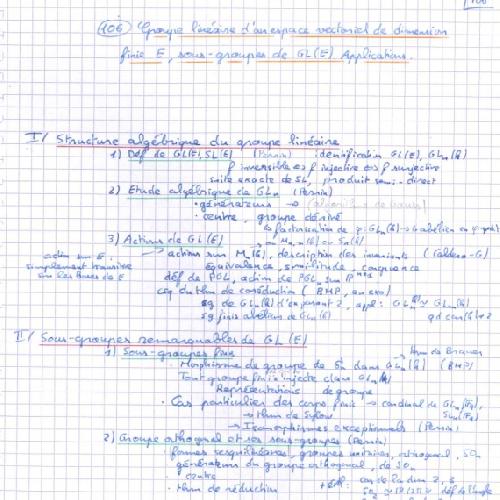 106 Groupe linéaire d'un espace vectoriel de dimension
finie E, sous-groupes de GL(E) Applications.
I/ Structure algébrique du groupe linéaire
1) Déf de GL(E), SL(E) (Perrin) identification GL(E), GLn(k)
f inversible ⇔ f injective ⇔ f surjective
suite exacte de SL, produit semi-direct
2) Etude algébrique de GLn (Perrin)
• générateurs →
• centre, groupe dérivé
↳ factorisation de φ: GLn(k) → G abélien
3) Actions de GL(E)
action sur E :
simplement transitive
sur les bases de E
actions sur Mn(k), description des invariants (Caldero-G)
équivalence, similitude, congruence
déf de PGL, action de PGLn sur
csq du thm de réduction (BMP,
sg de GLn(k) d'exposant 2, appl: GLn(k) ≄ GLm(k)
sg finis abéliens de GLn(k) qd car(k) ≠ 2
II/ Sous-groupes remarquables de GL(E)
1) Sous-groupes finis → thm de Brauer
- Morphisme de groupe de Sn dans GLn(k) (BMP)
Tout groupe fini s'injecte dans GLn(k)
Représentations de groupe
• Cas particulier des corps finis → cardinal de GLn(Fq), SLn(Fq)
→ thm de Sylow
→ Isomorphismes exceptionnels (Perrin)
2) Groupe orthogonal et ses sous-groupes (Perrin)
• formes sesquilinéaires, groupes unitaires, orthogonal, SOn
générateurs du groupe orthogonal, de SOn
• centre
• thm de réduction
+ déf: cas de la dim 2, 3